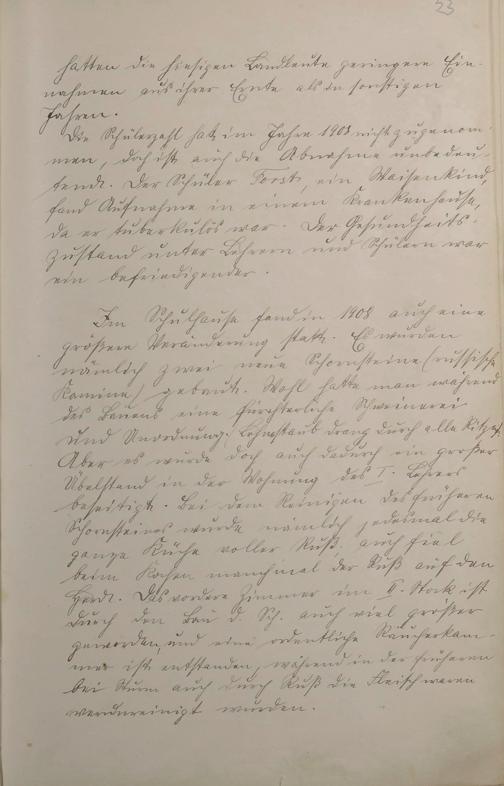 23
hatten die hiesigen Landleute geringere Ein-
nahmen aus ihrer Ernte als in sonstigen
Jahren.
Die Schülerzahl hat im Jahre 1908 nicht zugenom-
men, doch ist auch die Abnahme unbedeu-
tend. Der Schüler Forst, ein Waisenkind,
fand Aufnahme in einem Krankenhause,
da er tuberkulös war. Der Gesundheits-
zustand unter Lehrern und Schülern war
ein befriedigender.
Im Schulhause fand in 1908 auch eine
größere Veränderung statt. Es wurden
nämlich zwei neue Schornsteine (russische
Kamine) gebaut. Wohl hatte man während
des Bauens eine fürchterliche Schweinerei
und Unordnung; Lehmstaub drang durch alle Ritzen.
Aber es wurde doch auch dadurch ein großer
Übelstand in der Wohnung des I. Lehrers
beseitigt. Bei dem Reinigen des früheren
Schornsteines wurde nämlich jedesmal die
ganze Küche voller Ruß, auch fiel
beim Kochen manchmal der Ruß auf den
Herd. Das vordere Zimmer im II. Stock ist
durch den Bau d. Sch. auch viel größer
geworden, und eine ordentliche Räucherkam-
mer ist entstanden, während in der früheren
bei Sturm auch durch Ruß die Fleischwaren
verunreinigt wurden.